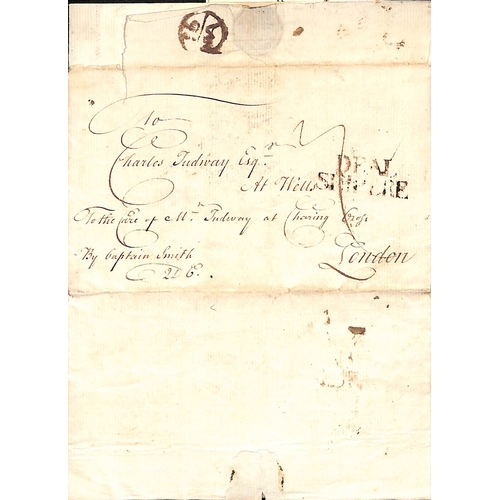 To
Charles Tudway Esqr.
At Wells
DEAL
SHIP LRE
To the Care of Mr. Tudway at Charing Cross
London
By Captain Smith